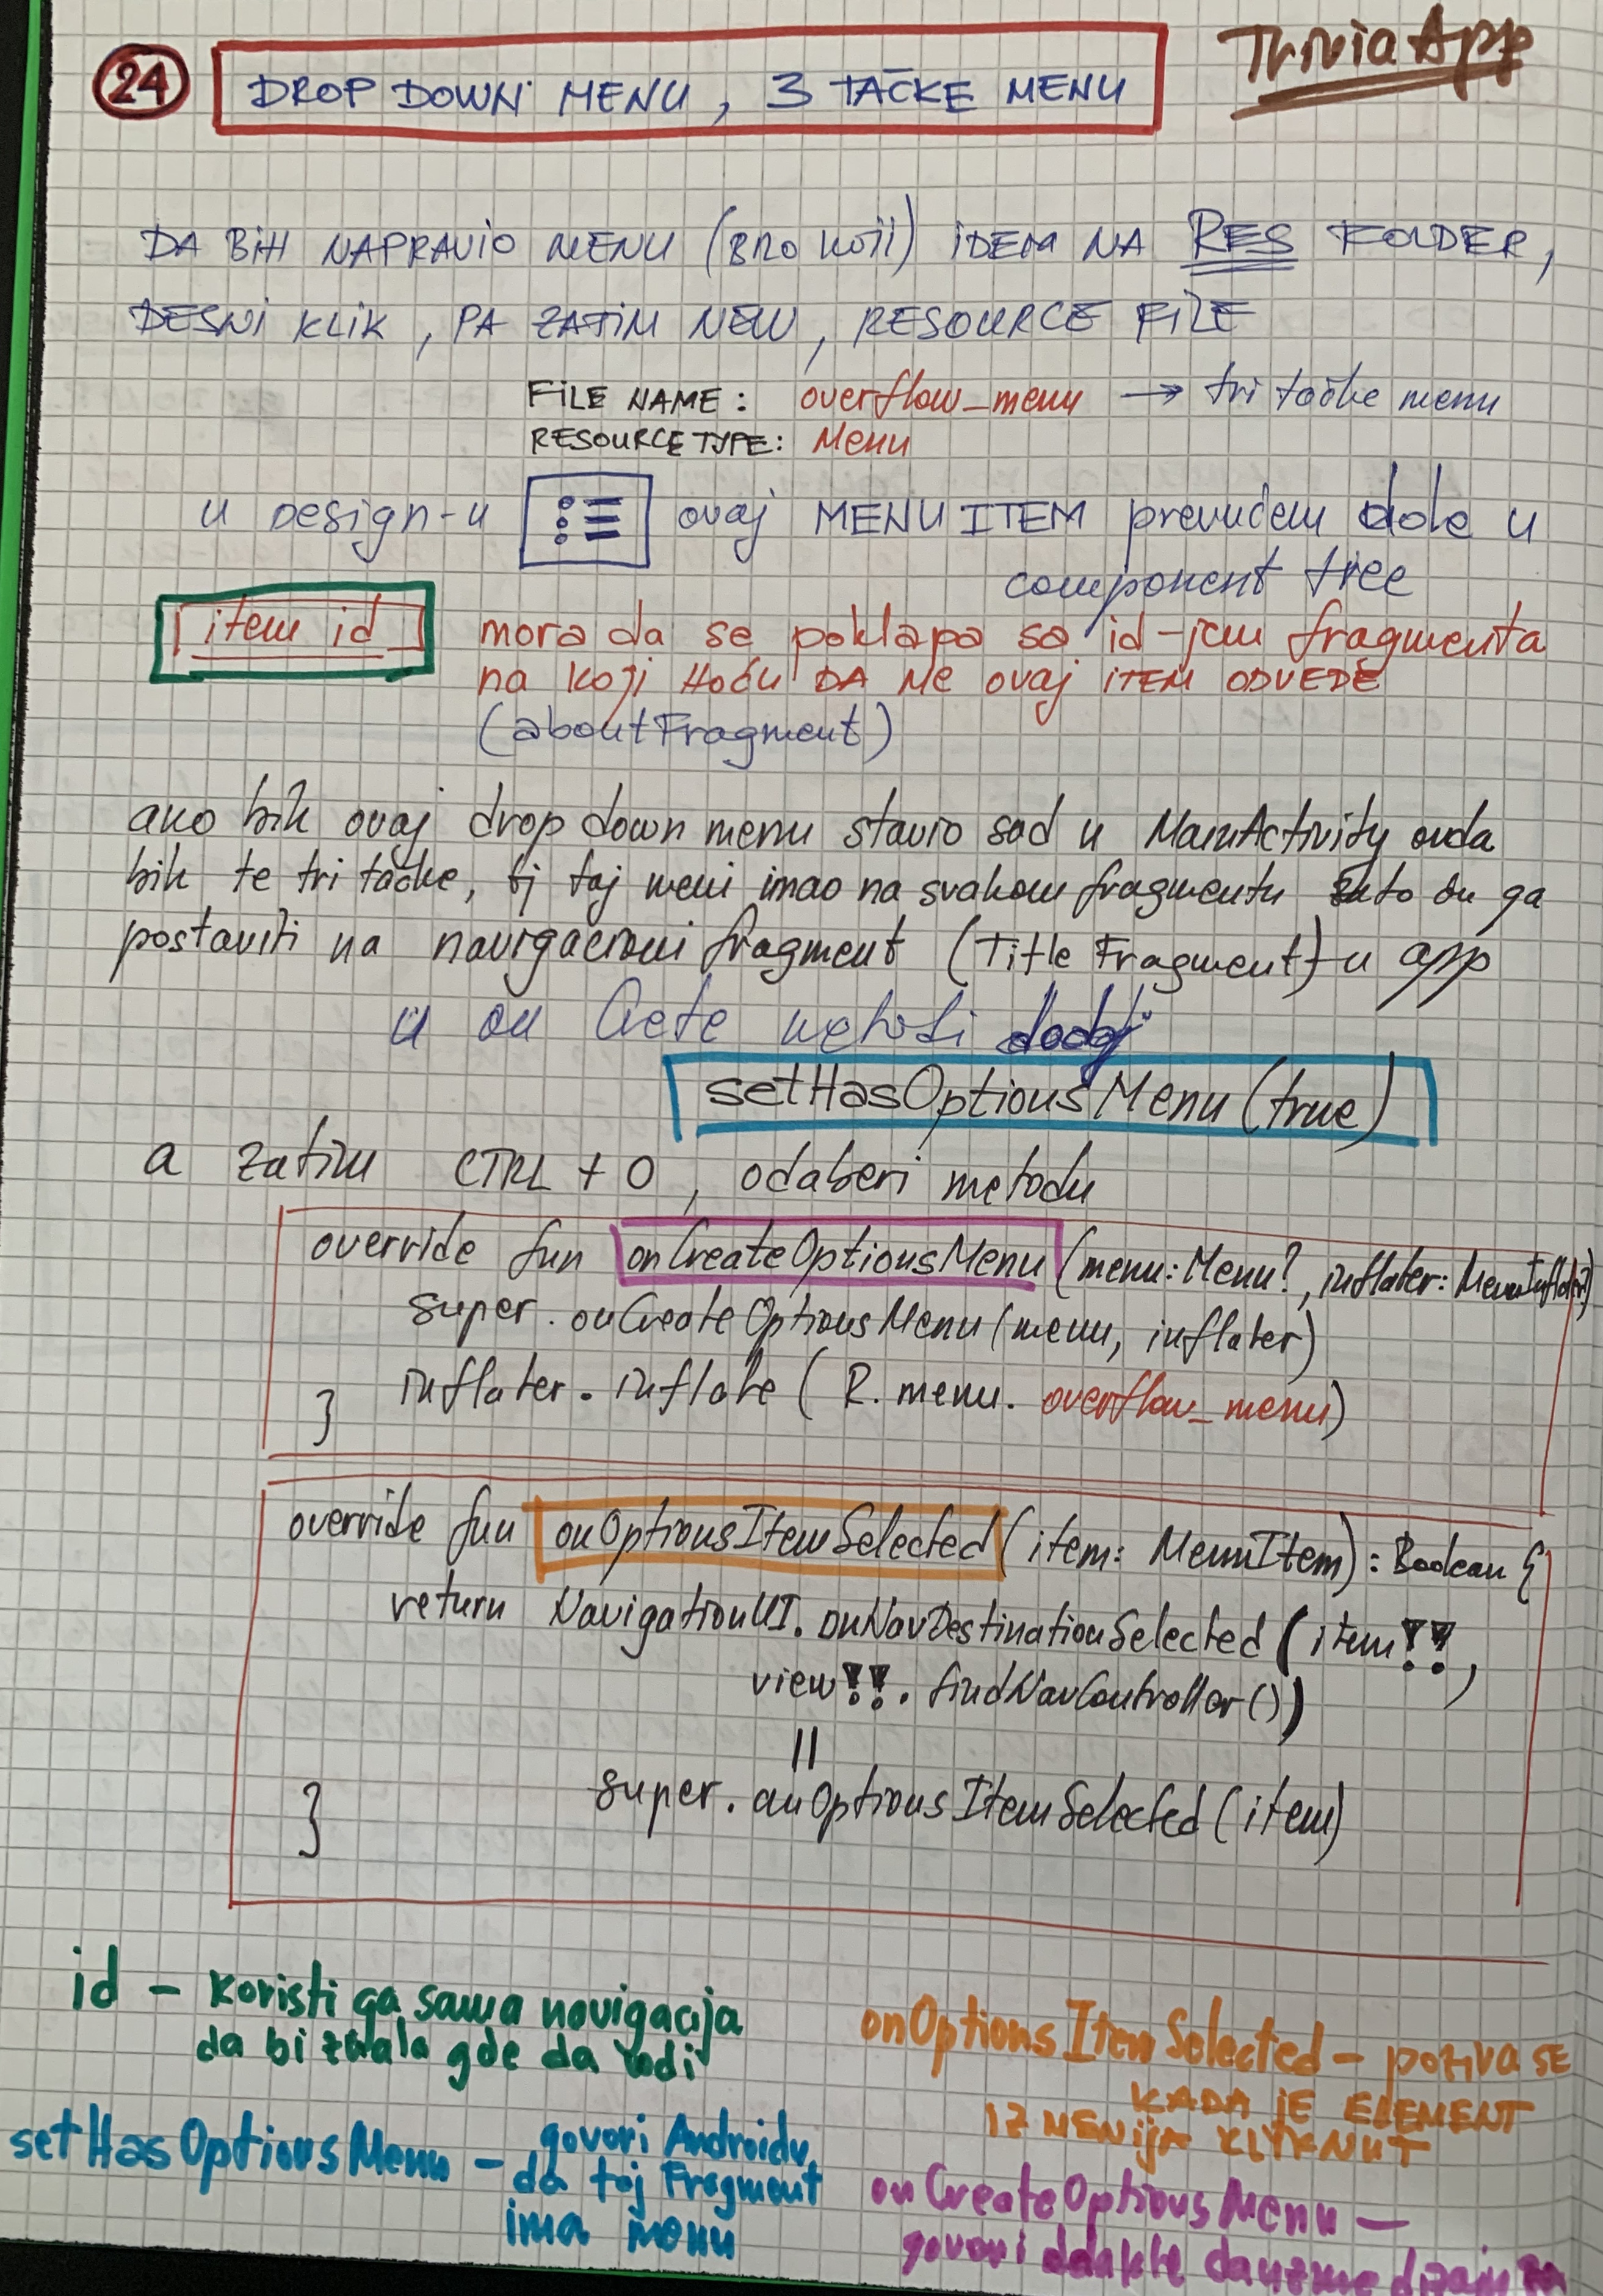 24 DROP DOWN MENU, 3 TAČKE MENU
TriviaApp
DA BIH NAPRAVIO MENU (BILO KOJI) IDEM NA RES FOLDER,
DESNI KLIK, PA ZATIM NEW, RESOURCE FILE
FILE NAME: overflow_menu → tri tačke menu
RESOURCE TYPE: Menu
u Design-u ovaj MENU ITEM prevučem dole u
component tree
item id mora da se poklapa sa id-jem fragmenta
na koji HOĆU DA ME ovaj ITEM ODVEDE
(aboutFragment)
ako bih ovaj drop down menu stavio sad u MainActivity onda
bih te tri tačke, tj taj meni imao na svakom fragmentu zato ću ga
postaviti na navigacioni fragment (Title Fragment) u app
u on Crete metodi dodaj
setHasOptionsMenu(true)
a zatim CTRL + O, odaberi metodu
override fun onCreateOptionsMenu (menu: Menu?, inflater: MenuInflater)
super.onCreateOptionsMenu(menu, inflater)
inflater.inflate ( R.menu.overflow_menu)
}
override fun onOptionsItemSelected (item: MenuItem): Boolean {
return NavigationUI.onNavDestinationSelected (item!!,
view!!.findNavController())
||
super.onOptionsItemSelected(item)
}
id - koristi ga sama navigacija
da bi znala gde da vodi
setHasOptionsMenu - govori Androidu
da taj Fragment
ima menu
onOptionsItemSelected - poziva SE
KADA JE ELEMENT
IZ MENIJA KLIKNUT
onCreateOptionsMenu -
govori odakle da uzme dizajn